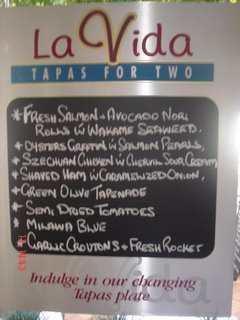 La Vida
TAPAS FOR TWO
* FRESH SALMON + AVOCADO NORI
ROLLS W WAKAME SEAWEED.
* OYSTERS GRATIN W SALMON PEARLS,
* SZECHUAN CHICKEN W CHERVIL SOUR CREAM
* SHAVED HAM W CARAMELIZED ONION,
* GREEN OLIVE TAPENADE
* SEMI DRIED TOMATOES
* MILAWA BLUE
* GARLIC CROUTONS + FRESH ROCKET
Indulge in our changing
Tapas plate